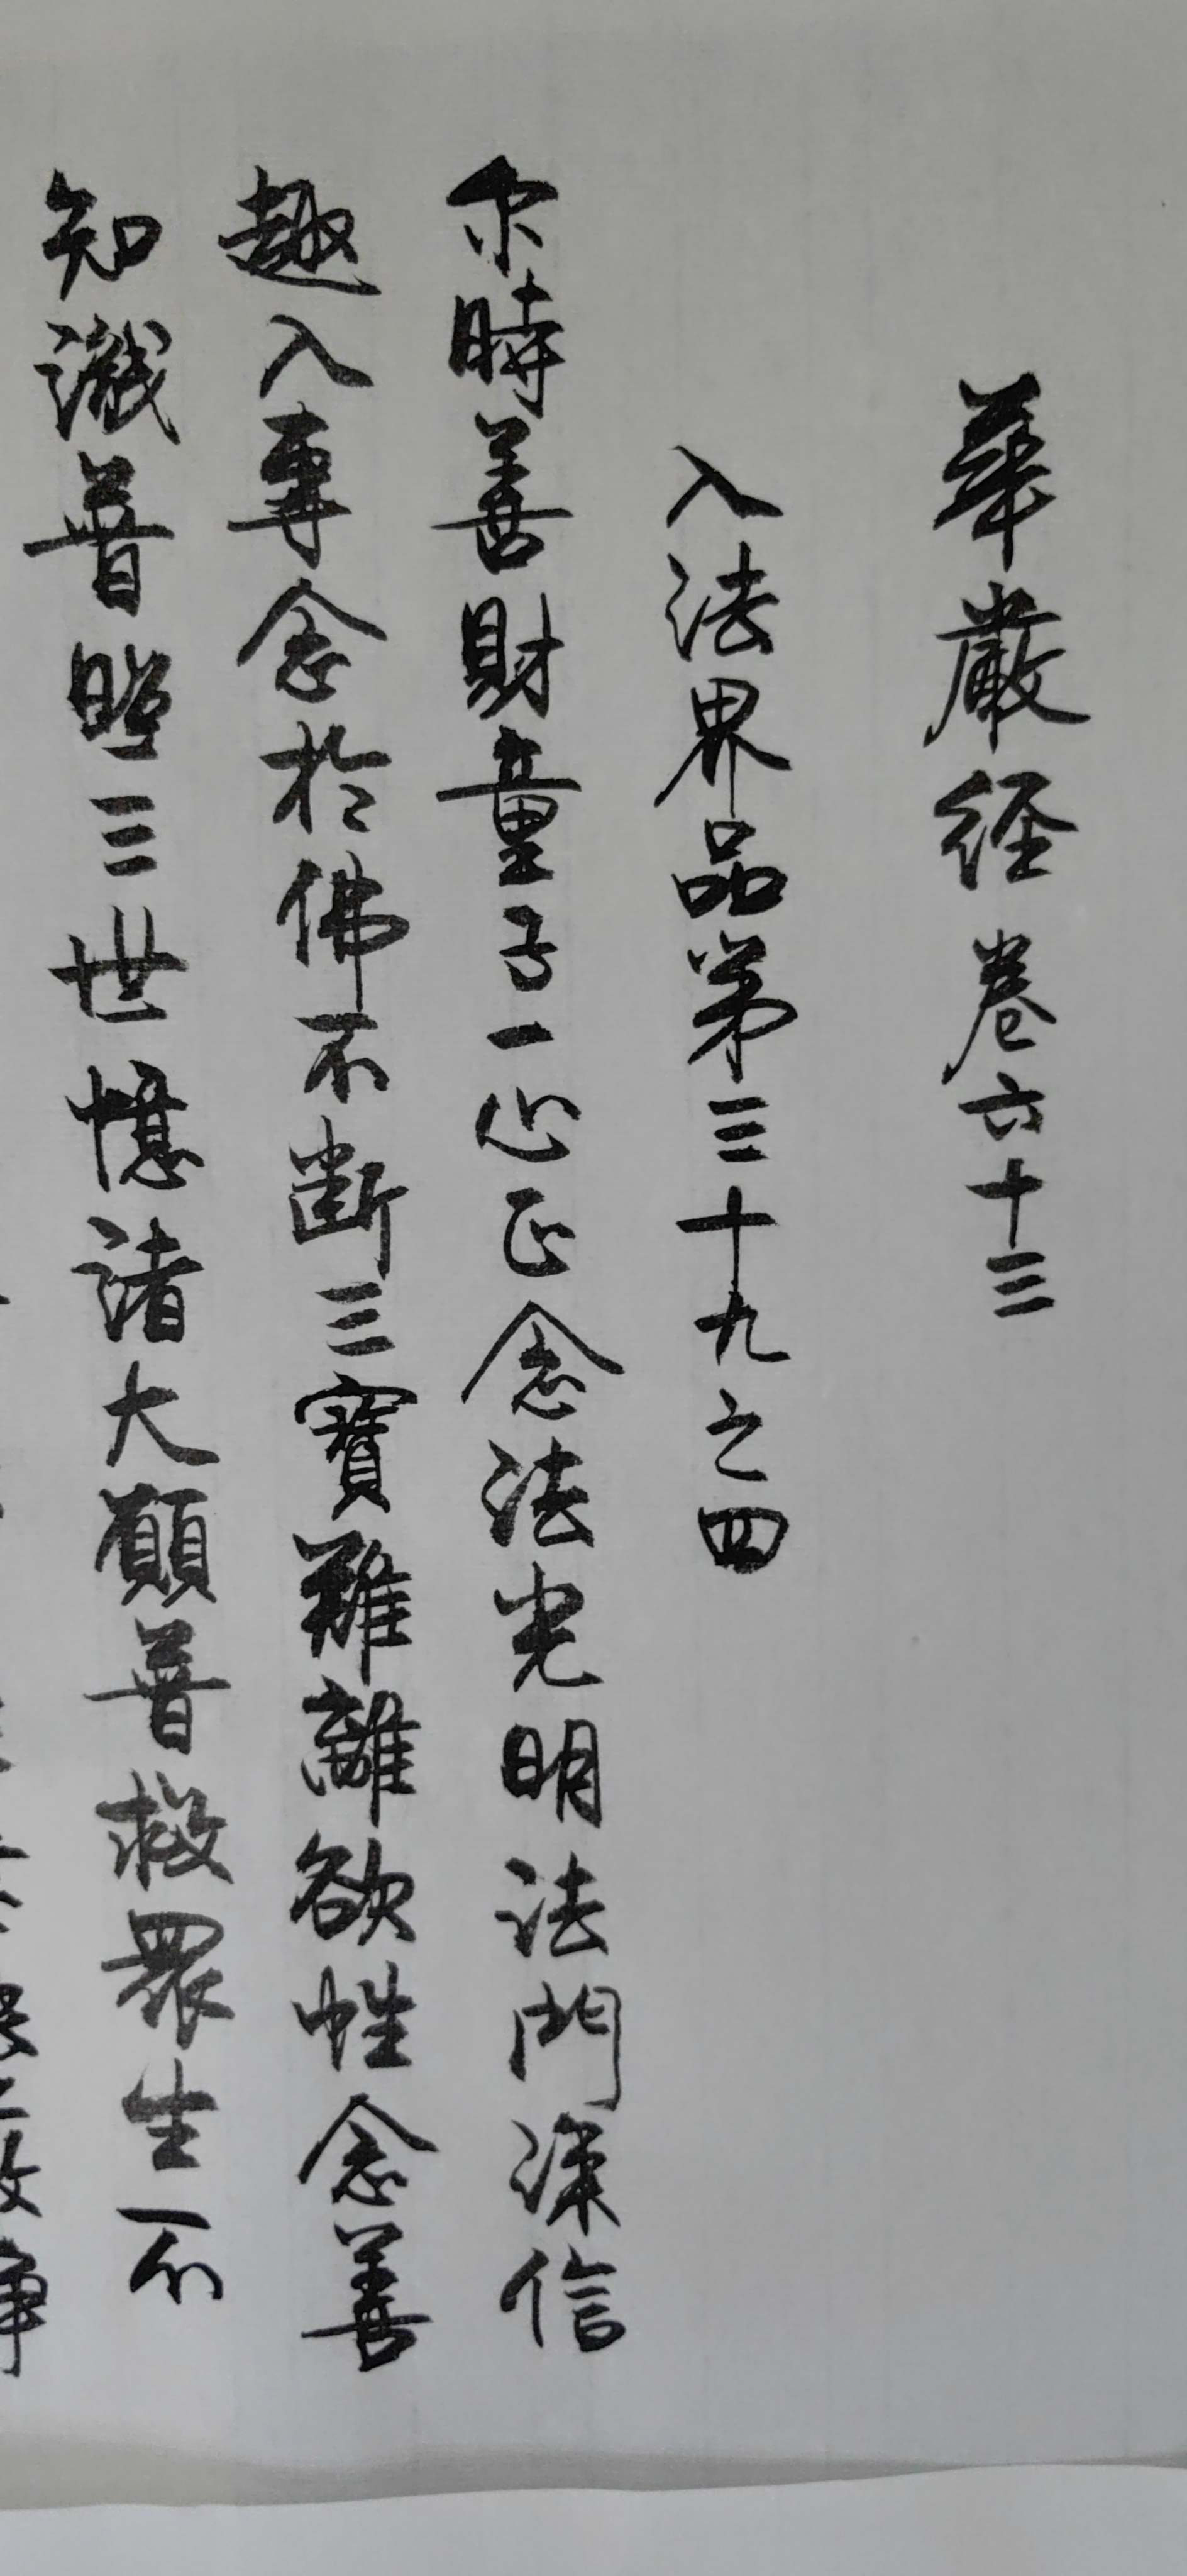 華嚴経 卷六十三
入法界品第三十九之四
尔時善財童子一心正念法光明法門深信
趣入専念於佛不断三寳難離欲性念善
知識普照三世憶諸大願普救眾生不